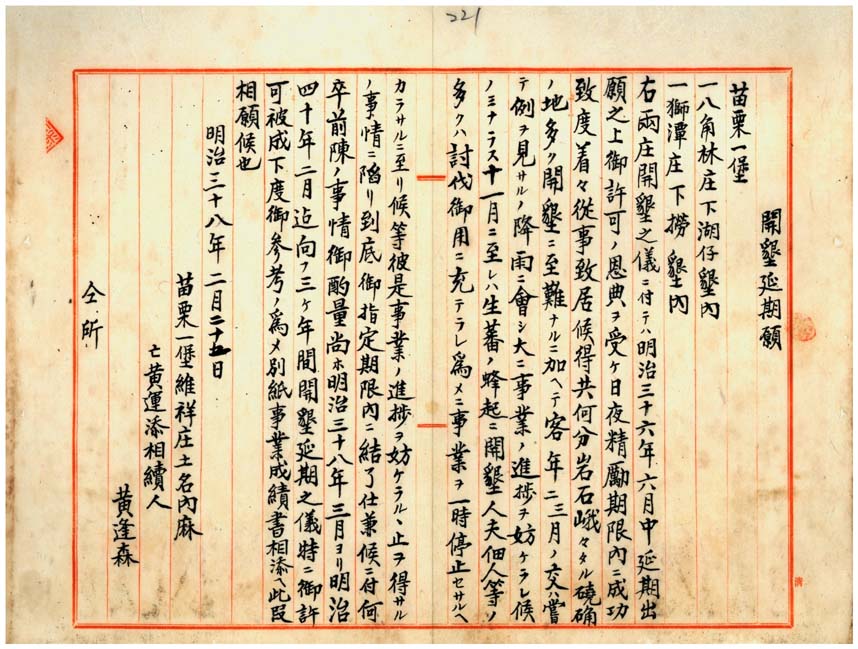 221
開墾延期願
苗栗一堡
一八角林庄下湖仔墾內
一獅潭庄下撈墾內
右兩庄開墾之儀ニ付テハ明治三十六年六月中延期出
願之上御許可ノ恩典ヲ受ケ日夜精勵期限內ニ成功
致度着々從事致居候得共何分岩石峨々タル磽确
ノ地多ク開墾ニ至難ナルニ加ヘテ客年二三月ノ交ハ嘗
テ例ヲ見サルノ降雨ニ會シ大ニ事業ノ進捗ヲ妨ケラレ候
ノミナラス十一月ニ至レハ生蕃ノ蜂起ニ開墾人夫佃人等ノ
多クハ討伐御用ニ充テラレ爲メニ事業ヲ一時停止セサルヘ
カラサルニ至リ候等彼是事業ノ進捗ヲ妨ケラルヽ止ヲ得サル
ノ事情ニ陷リ到底御指定期限內ニ結了仕兼候ニ付何
卒前陳ノ事情御酌量尚ホ明治三十八年三月ヨリ明治
四十年二月迄向フ三ケ年間開墾延期之儀特ニ御許
可被成下度御參考ノ爲メ別紙事業成績書相添ヘ此段
相願候也
明治三十八年二月二十五日
苗栗一堡維祥庄土名內麻
亡黃運添相續人
黃逢森
仝所